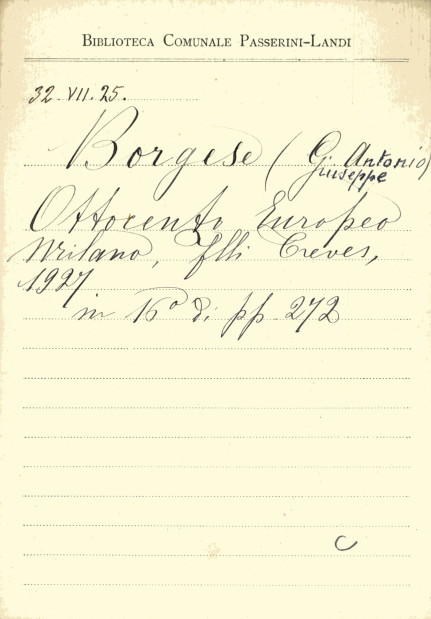 BIBLIOTECA COMUNALE PASSERINI-LANDI
32. VII. 25.
Borgese (G. Antonio)
Giuseppe
Ottocento Europeo
Milano, F.lli Treves,
1927
in 16° di pp. 272
C